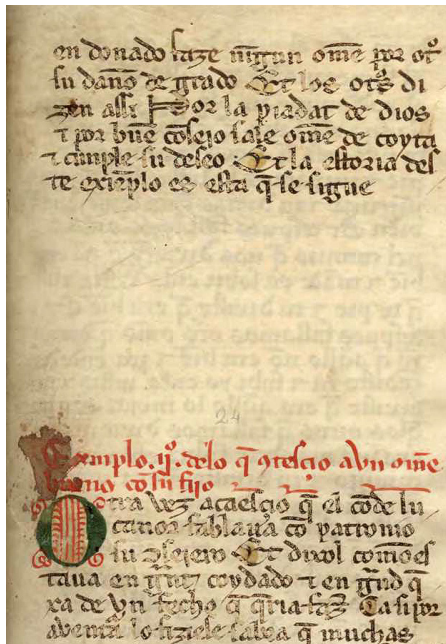 en donado faze ningun om̃e por ot°
su daño de grado Et los otꝰs di
zen assi Por la piadat de dios
⁊ por buẽ cõsejo sale om̃e de coyta
⁊ cunple su deseo Et la estoria des
te exienplo es esta q̃ se sigue
24
Exenplo .ijº. delo q̃ ꝯtesçio a vn om̃e
bueno cõ su fijo
Otra vez acaesçio q̃ el cõde lu
canor fablaua cõ patronio
su ꝯsejero Et dixol commo es
taua en grãt coydado ⁊ en grãd q̃
xa de vn fecho q̃ q̃ria faz̃ Ca si por
auentᵃ lo fiziese sabia q̃ muchas